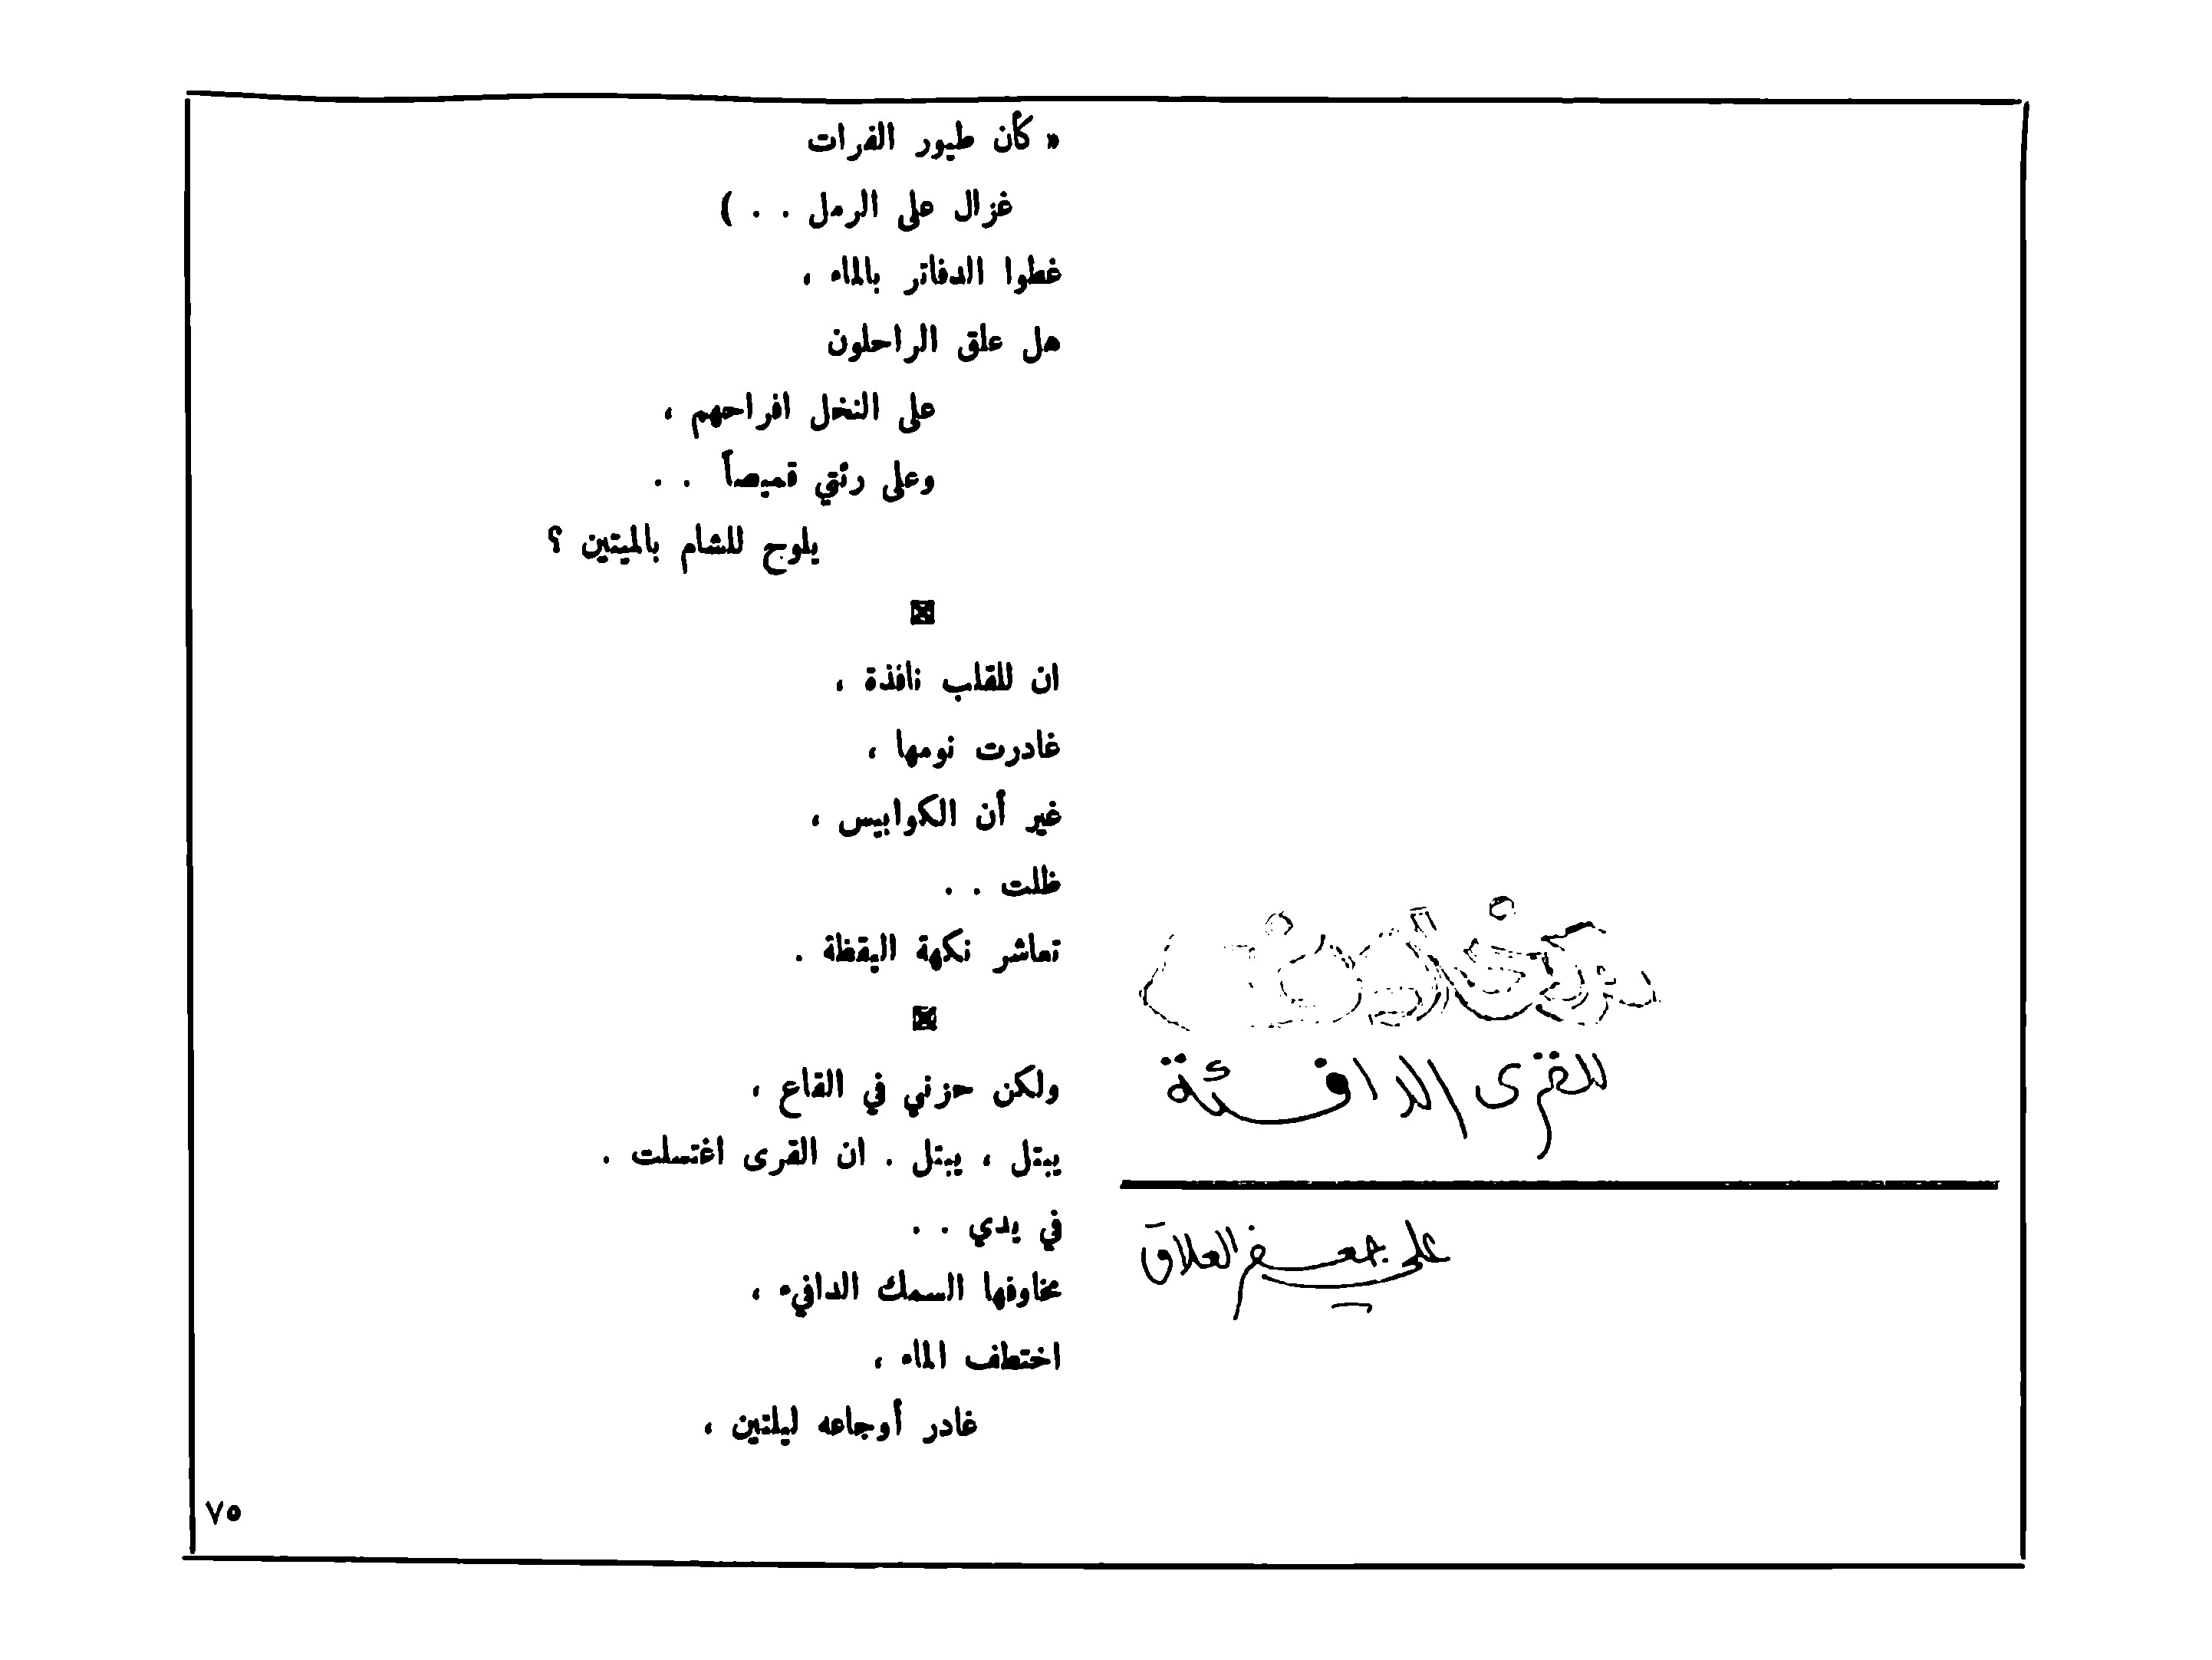 للقرى الدافئة
علي جعفر العلاق
« كأن طيور الفرات
غزال على الرمل . . )
غطوا الدفاتر بالماء ،
هل علق الراحلون
على النخل افراحهم ،
وعلى رئتي قميصاً . .
يلوح للشام بالميتين ؟
ان للقلب نافذة ،
غادرت نومها ،
غير أن الكوابيس ،
ظلت . .
تعاشر نكهة اليقظة .
ولكن حزني في القاع ،
يبتل ، يبتل . ان القرى اغتسلت .
في يدي . .
مخاوفها السمك الدافيء ،
اختطف الماء ،
غادر أوجاعه ليلتين ،
٧٥